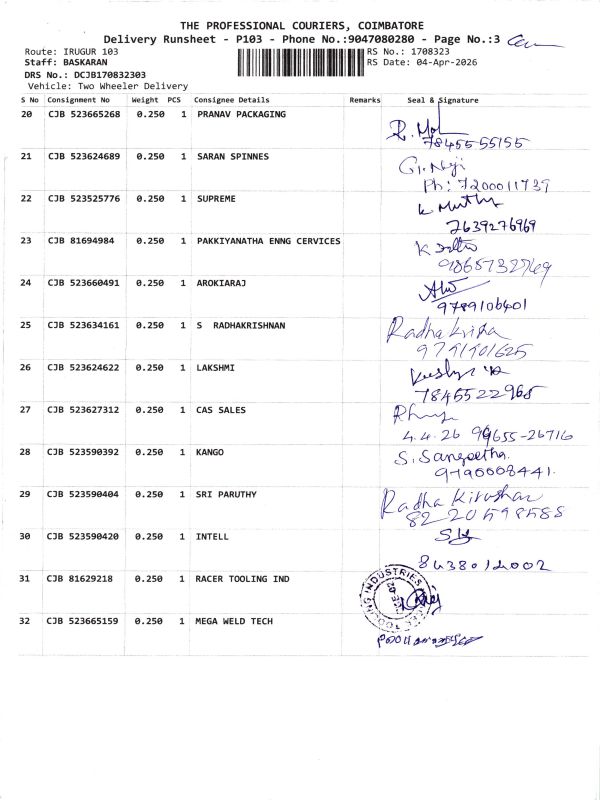 THE PROFESSIONAL COURIERS, COIMBATORE
Delivery Runsheet - P103 - Phone No.:9047080280 - Page No.:3
Route: IRUGUR 103
RS No.: 1708323
Staff: BASKARAN
RS Date: 04-Apr-2026
DRS No.: DCJB170832303
Vehicle: Two Wheeler Delivery
S No Consignment No Weight PCS Consignee Details Remarks Seal & Signature
20 CJB 523665268 0.250 1 PRANAV PACKAGING
78455 55155
21 CJB 523624689 0.250 1 SARAN SPINNES
Ph: 7200011739
22 CJB 523525776 0.250 1 SUPREME
7639276969
23 CJB 81694984 0.250 1 PAKKIYANATHA ENNG CERVICES
24 CJB 523660491 0.250 1 AROKIARAJ
9789106401
25 CJB 523634161 0.250 1 S RADHAKRISHNAN
9791901625
26 CJB 523624622 0.250 1 LAKSHMI
7845522968
27 CJB 523627312 0.250 1 CAS SALES
4.4.26 99655-26716
28 CJB 523590392 0.250 1 KANGO
S. Sangeetha.
9190008441.
29 CJB 523590404 0.250 1 SRI PARUTHY
Radha Kirushan
82 20598588
30 CJB 523590420 0.250 1 INTELL
8438012002
31 CJB 81629218 0.250 1 RACER TOOLING IND
TOOLING INDUSTRIES
32 CJB 523665159 0.250 1 MEGA WELD TECH